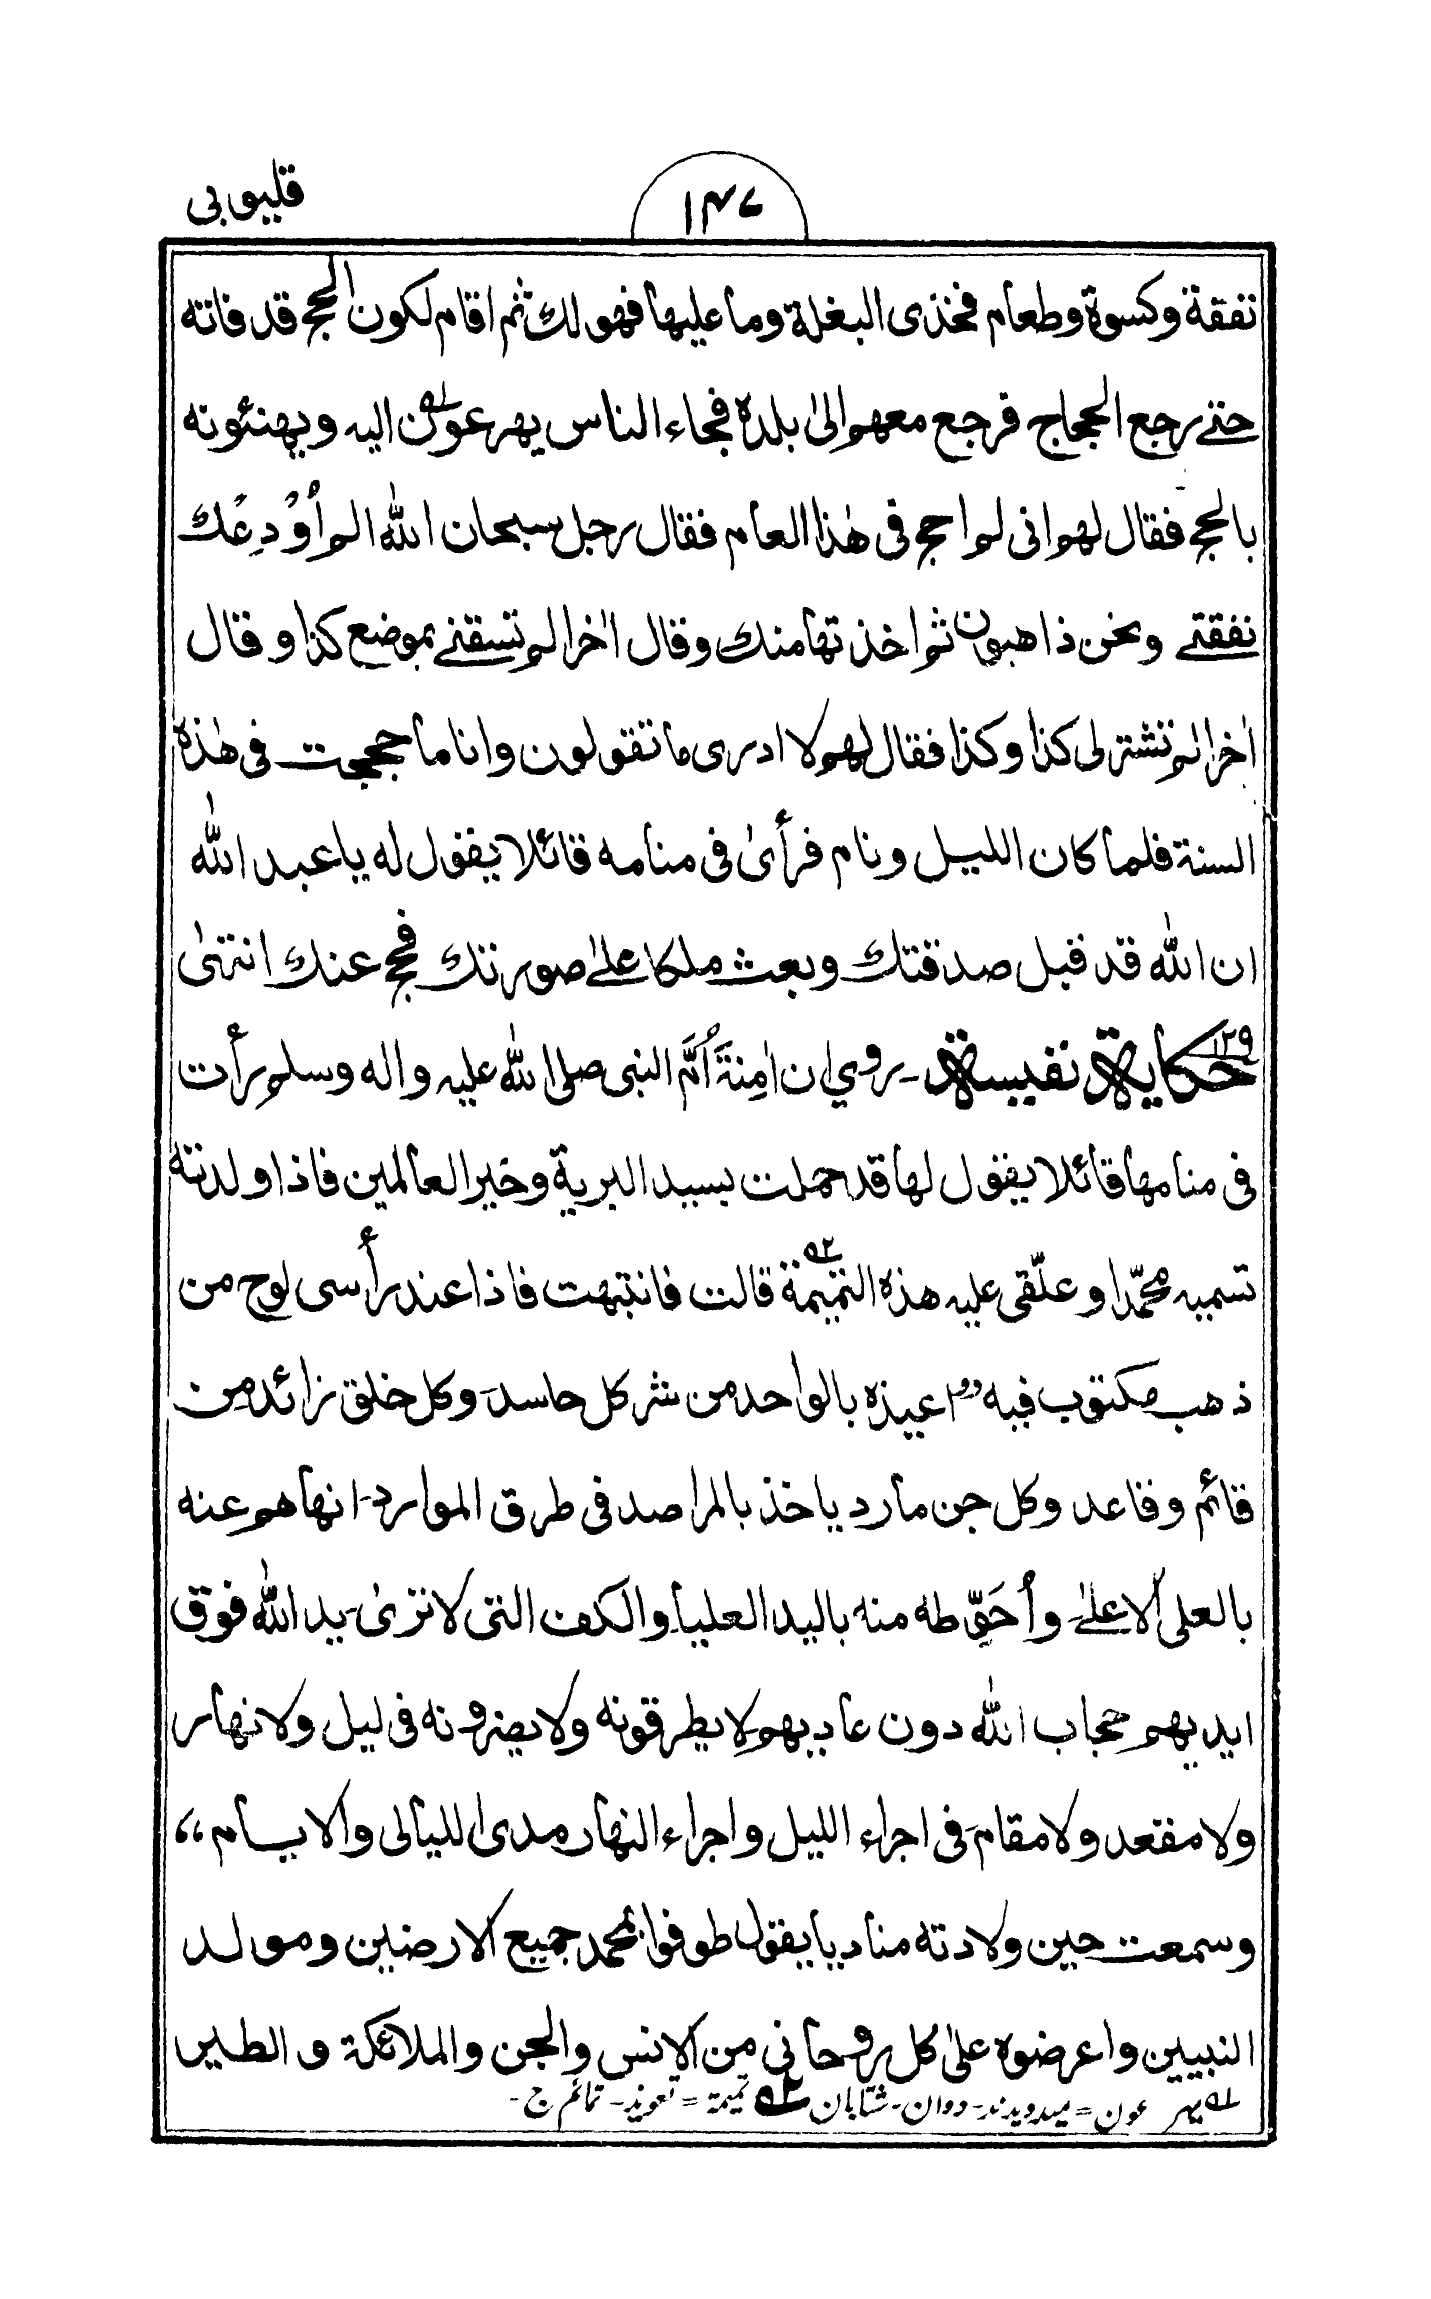 قليوبی
١٤٧
نفقة وكسوة وطعام فخذى البغلة وما عليها فهو لك ثم اقام لكون الحج قد فاته
حتے رجع الحجاج فرجع معهم الىٰ بلده فجاء الناس يهرعون اليه ويهنئونه
بالحج فقال لهم انى لم احج فى هٰذا العام فقال رجل سبحان الله الم أُوْدِعْك
نفقتے ونحن ذاهبون ثم اخذتها منك وقال اٰخر الم تسقنے بموضع كذا وقال
اٰخر الم تشتر لى كذا وكذا فقال لهم لا ادرى ما تقولون وانا ما حججت فى هٰذه
السنة فلما كان الليل ونام فرأىٰ فى منامه قائلا يقول له يا عبد الله
ان الله قد قبل صدقتك وبعث ملكا علےٰ صورتك فحج عنك انتهىٰ
١٢٩ حكاية نفيسة - روي ان اٰمِنَةَ أُمَّ النبى صلى الله عليه واٰله وسلم رأت
فى منامها قائلا يقول لها قد حملت بسيد البرية وخير العالمين فاذا ولدته
تسميه محمّدا وعلّقى عليه هذه التميمة ٥٢ قالت فانتبهت فاذا عند رأسى لوح من
ذهب مكتوب فيه ”اعيذه بالواحد من شر كل حاسد - وكل خلق زائد من
قائم وقاعد وكل جن مارد ياخذ بالمراصد فى طرق الموارد - انهاهم عنه
بالعلى الاعلےٰ - وأُحَوِّطه منه باليد العليا والكف التى لا ترىٰ - يد الله فوق
ايديهم حجاب الله دون عاديهم لا يطرقونه ولا يضرونه فى ليل ولا نهار
ولا مقعد ولا مقام - فى اجراء الليل واجراء النهار مدى الليالى والايام“
وسمعت حين ولادته مناديا يقول طوفوا بمحمد جميع الارضين ومولد
النبيين واعرضوه علىٰ كل روحانى من الانس والجن والملائكة والطير
٥١ يهرعون = ميدويدند - دوان - شتابان ٥٢ تميمة = تعويذ - تمائم ج -